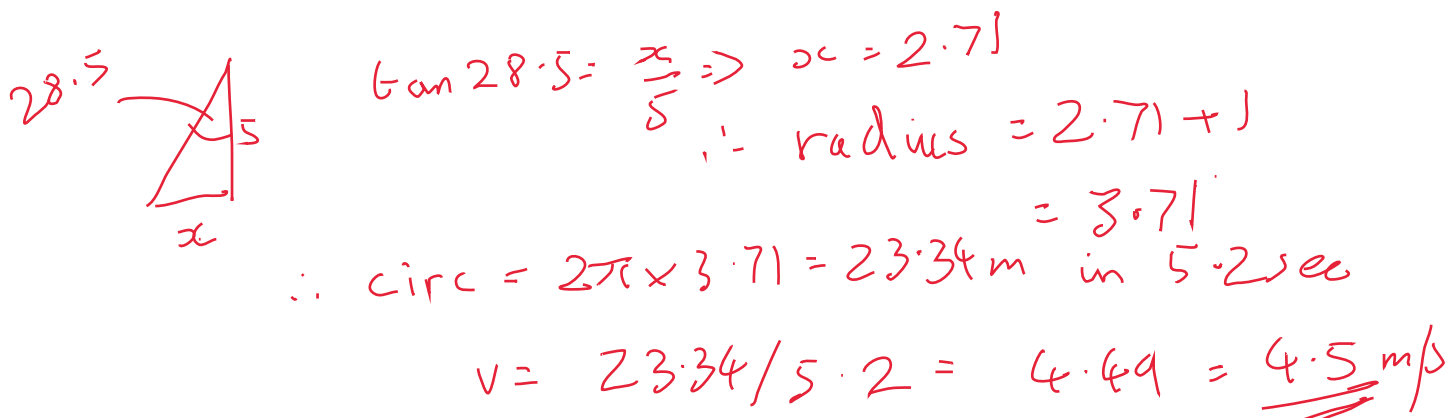 28.5
5
x
tan 28.5 = x/5 => x = 2.71
∴ radius = 2.71 + 1
= 3.71
∴ circ = 2π × 3.71 = 23.34 m in 5.2 sec
v = 23.34/5.2 = 4.49 = 4.5 m/s